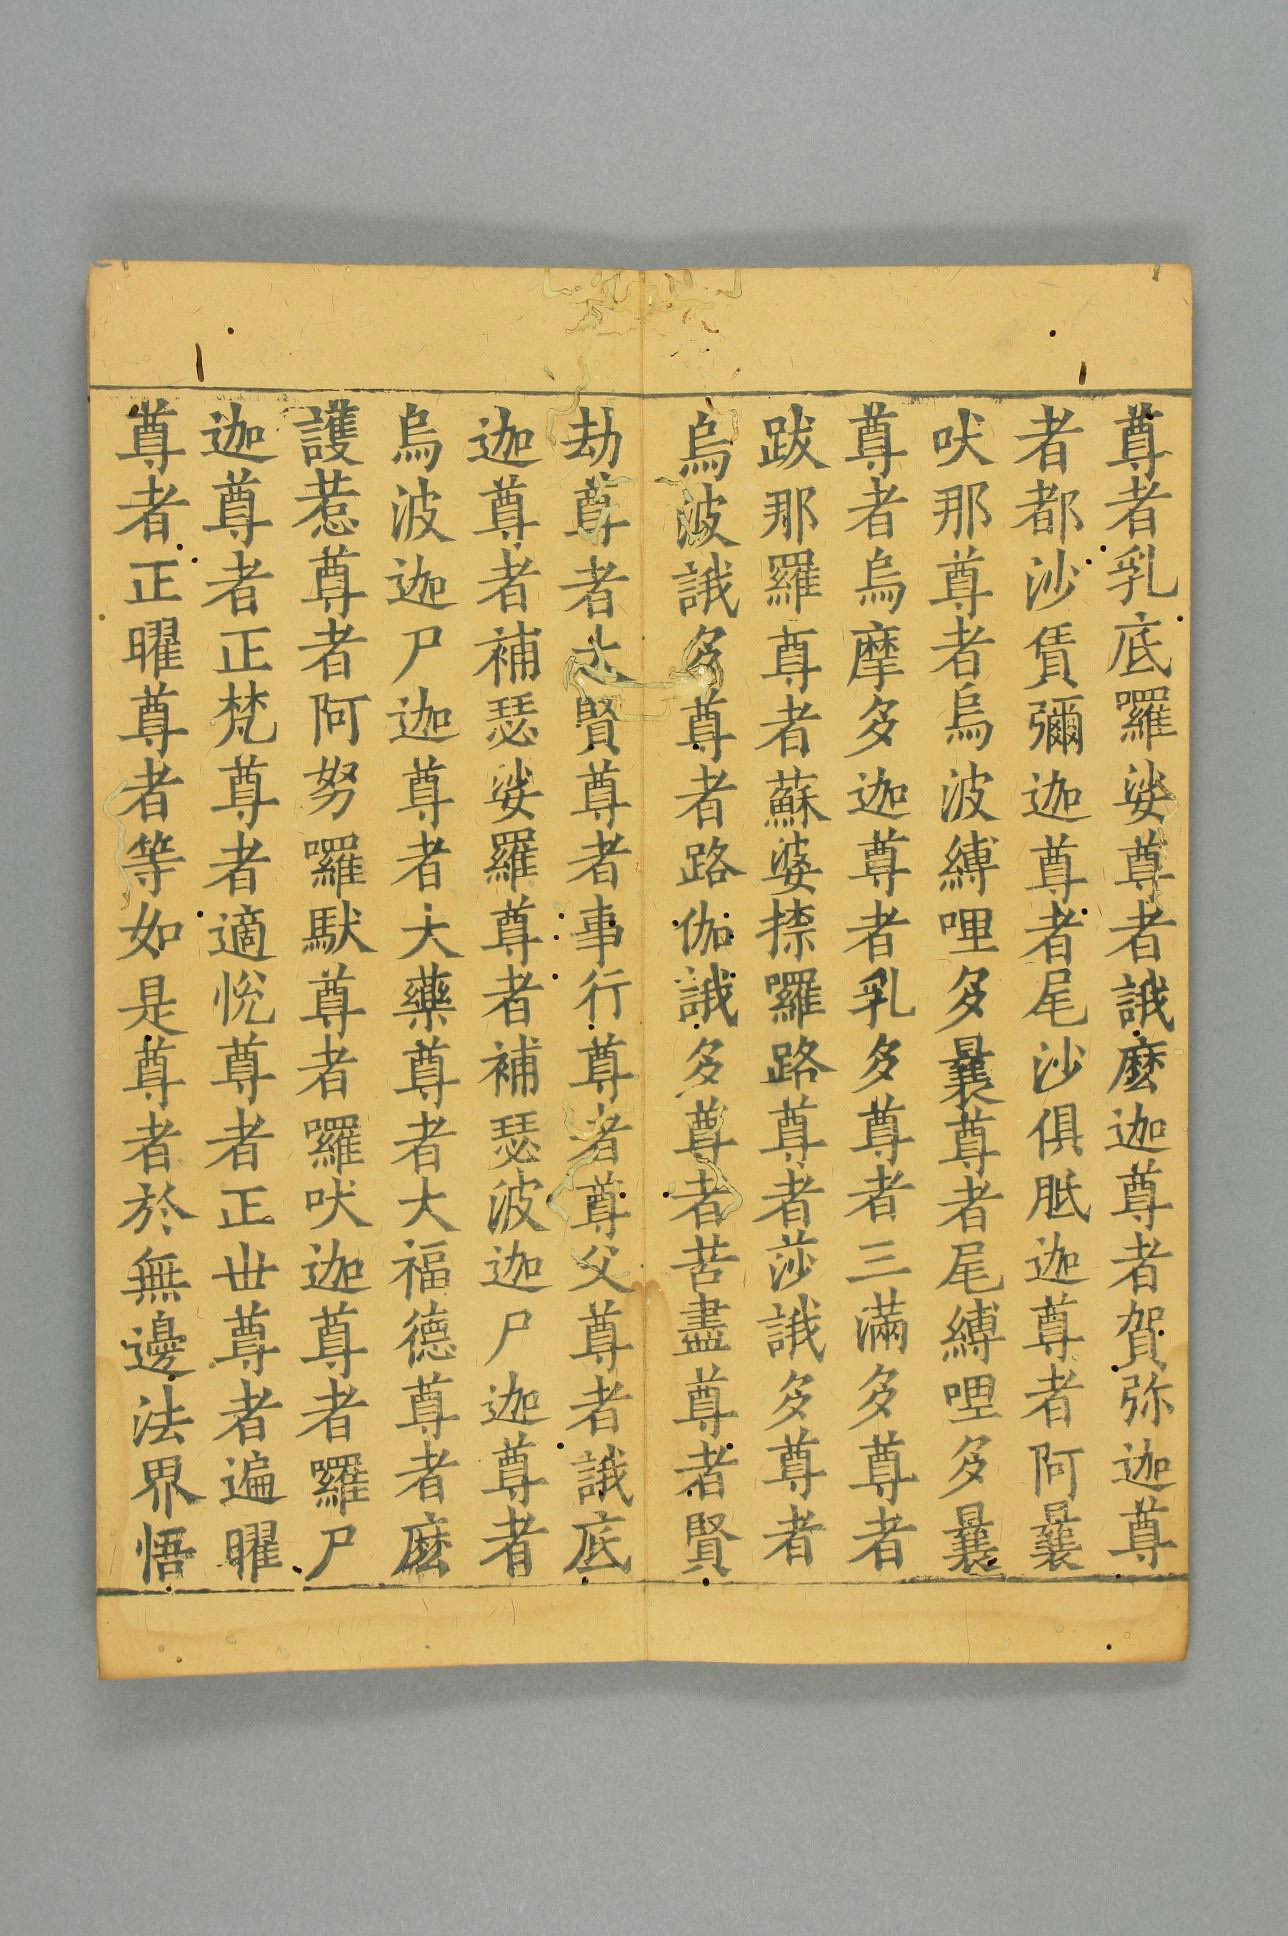 尊者乳底囉娑尊者誐麽迦尊者賀弥迦尊
者都沙賃彌迦尊者尾沙俱胝迦尊者阿曩
吠那尊者烏波縛哩多曩尊者尾縛哩多曩
尊者烏摩多迦尊者乳多尊者三滿多尊者
跋那羅尊者蘇婆捺囉路尊者莎誐多尊者
烏波誐多尊者路伽誐多尊者苦盡尊者賢
劫尊者大賢尊者事行尊者尊父尊者誐底
迦尊者補瑟娑羅尊者補瑟波迦尸迦尊者
烏波迦尸迦尊者大藥尊者大福德尊者麽
護惹尊者阿努囉馱尊者囉吠迦尊者囉尸
迦尊者正梵尊者適悅尊者正世尊者遍曜
尊者正曜尊者等如是尊者於無邊法界悟